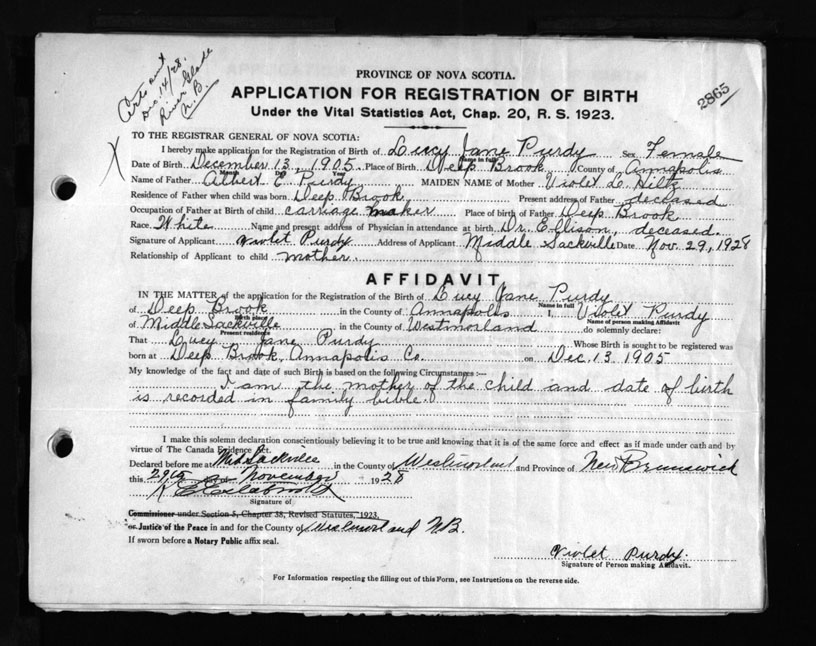 Cert. sent
Dec 14/28.
River Glade
N.B.
2865
PROVINCE OF NOVA SCOTIA.
APPLICATION FOR REGISTRATION OF BIRTH
Under the Vital Statistics Act, Chap. 20, R. S. 1923.
TO THE REGISTRAR GENERAL OF NOVA SCOTIA:
X
I hereby make application for the Registration of Birth of Lucy Jane Purdy Sex Female
Name in full
Date of Birth December 13, 1905. Place of Birth Deep Brook County of Annapolis
Month Day Year
Name of Father Albert E. Purdy MAIDEN NAME of Mother Violet L. Hiltz
Residence of Father when child was born Deep Brook Present address of Father deceased
Occupation of Father at Birth of child carriage maker Place of birth of Father Deep Brook
Race White Name and present address of Physician in attendance at birth Dr. Ellison, deceased.
Signature of Applicant Violet Purdy Address of Applicant Middle Sackville Date Nov. 29, 1928
Relationship of Applicant to child mother.
AFFIDAVIT
IN THE MATTER of the application for the Registration of the Birth of Lucy Jane Purdy
Name in full
of Deep Brook in the County of Annapolis I, Violet Purdy
Birth place Name of person making Affidavit
of Middle Sackville in the County of Westmorland do solemnly declare:
Present residence
That Lucy Jane Purdy Whose Birth is sought to be registered was
born at Deep Brook, Annapolis Co. on Dec. 13 1905
My knowledge of the fact and date of such Birth is based on the following Circumstances:—
I am the mother of the child and date of birth
is recorded in family bible.
I make this solemn declaration conscientiously believing it to be true and knowing that it is of the same force and effect as if made under oath and by
virtue of The Canada Evidence Act.
Declared before me at Mid. Sackville in the County of Westmorland and Province of New Brunswick
this 29th November 1928
Signature of
Commissioner under Section 5, Chapter 38, Revised Statutes, 1923.
or Justice of the Peace in and for the County of Westmorland N.B.
If sworn before a Notary Public affix seal.
Violet Purdy.
Signature of Person making Affidavit.
For Information respecting the filling out of this Form, see Instructions on the reverse side.